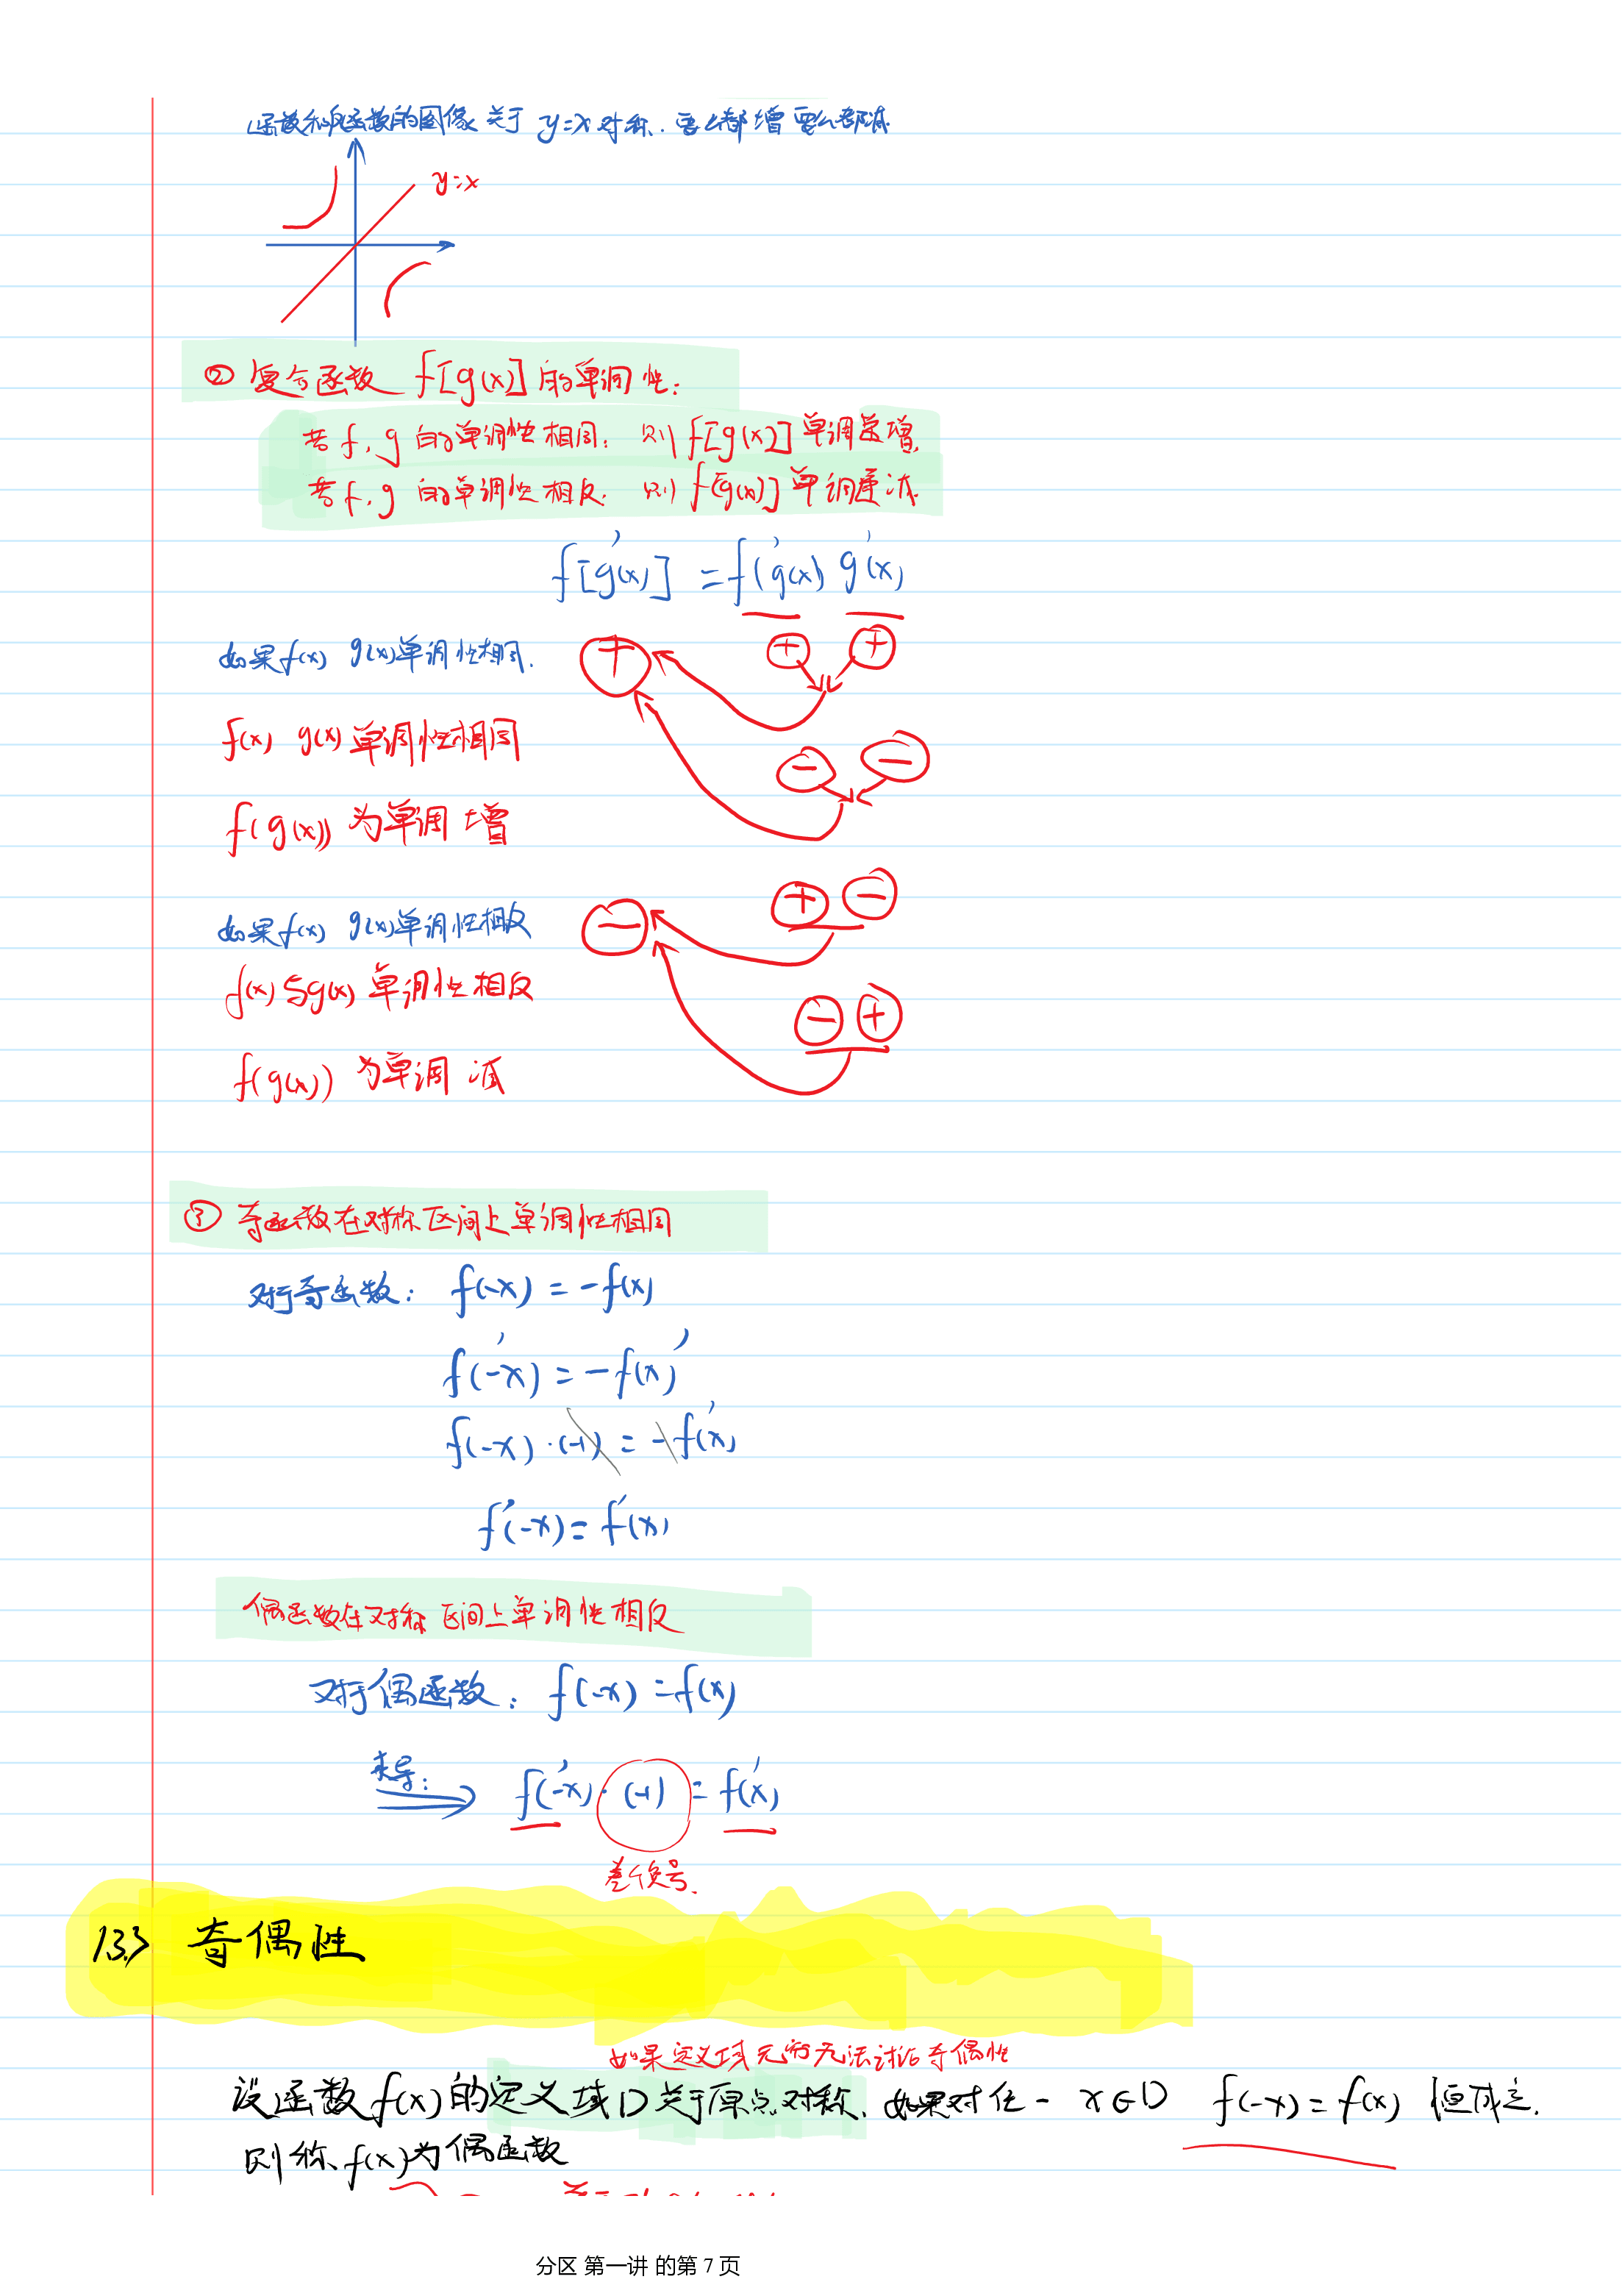 函数和反函数的图像关于 y=x 对称. 要么都增 要么都减
y=x
② 复合函数 f[g(x)] 的单调性:
若 f, g 的单调性相同: 则 f[g(x)] 单调递增.
若 f, g 的单调性相反: 则 f[g(x)] 单调递减.
f[g(x)]' = f'(g(x)) g'(x)
如果f(x) g(x)单调性相同.
+ + +
f(x) g(x) 单调性相同
- -
f(g(x)) 为单调 增
如果f(x) g(x)单调性相反
- + -
f(x)与g(x) 单调性相反
- +
f(g(x)) 为单调 减
③ 奇函数在对称区间上单调性相同
对于奇函数: f(-x) = -f(x)
f(-x)' = -f(x)'
f(-x)·(-1) = -f'(x)
f'(-x) = f'(x)
偶函数在对称区间上单调性相反
对于偶函数: f(-x) = f(x)
求导: f'(-x)·(-1) = f'(x)
差个负号.
1.3.3 奇偶性
如果定义域无穷无法讨论奇偶性
设函数 f(x) 的定义域D关于原点对称. 如果对任一 x∈D f(-x) = f(x) 恒成立.
则称 f(x)为偶函数
分区 第一讲 的第 7 页